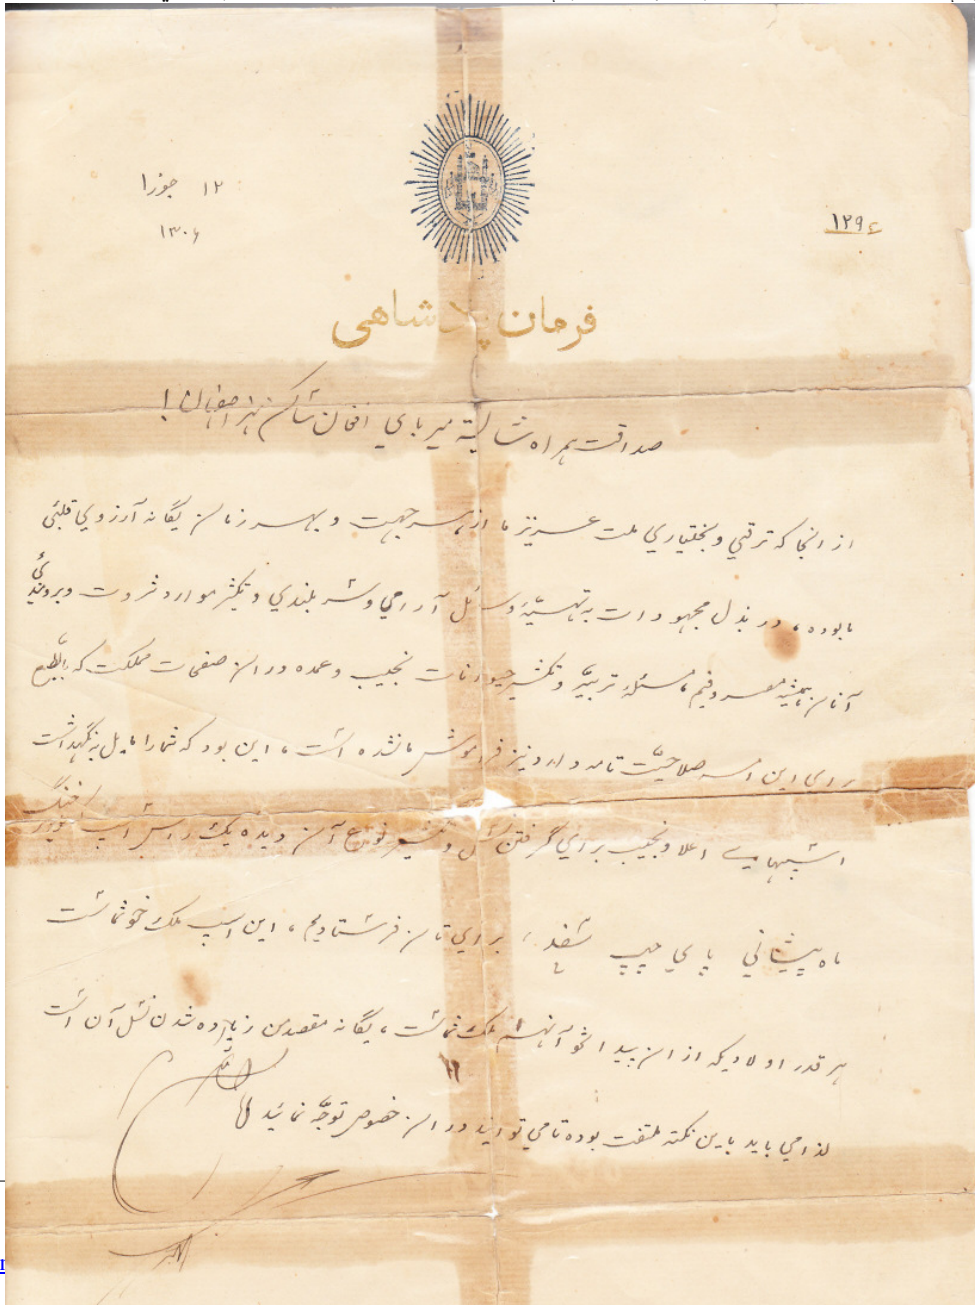 ۱۲ جوزا
۱۳۰۶
۱۲۹۶
فرمان پادشاهی
صداقت همراه شایسته میر بای افغان ساکن
از آنجا که ترقی و بختیاری ملت عزیز ما از هر جهت و بهر زمان یگانه آرزوی قلبئی
ما بوده، در بذل مجهودات به تهیئه وسائل آرامی و سر بلندی و تکثیر موارد ثروت و برومندئ
آنان همیشه مصروفیم، مسئله تربیه و تکثیر حیوانات نجیب و عمده در ان صفحات مملکت که بالطبع
برای این امر صلاحیت تامه دارد نیز فراموش ما نشده است، این بود که شما را مایل به نگهداشت
اسپهای اعلا و نجیب برای گرفتن نسل و تکثیر نوع آن دیده یک راس اسپ
ماه پیشانی پای چپ سفید، برای تان فرستادیم، این اسپ ملک خود شماست
هر قدر اولادیکه از ان پیدا شود آنهم ملک شماست، یگانه مقصد من زیاده شدن نسل آن است
لذا می باید باین نکته ملتفت بوده تا می توانید در ان خصوص توجه نمائید